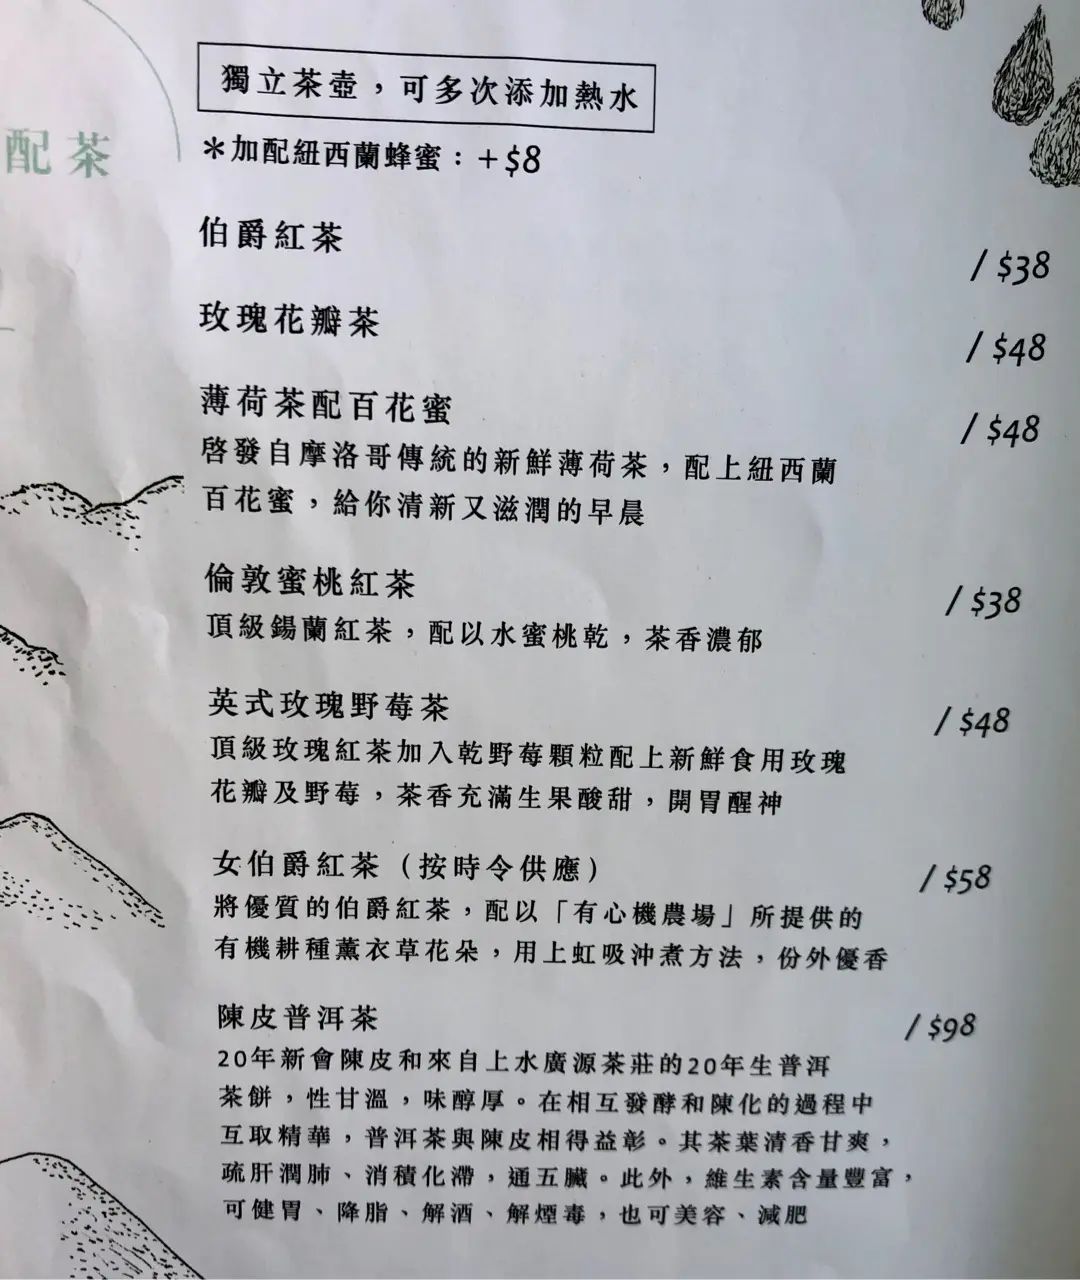 配茶
獨立茶壺，可多次添加熱水
＊加配紐西蘭蜂蜜：+$8
伯爵紅茶 / $38
玫瑰花瓣茶 / $48
薄荷茶配百花蜜 / $48
啓發自摩洛哥傳統的新鮮薄荷茶，配上紐西蘭
百花蜜，給你清新又滋潤的早晨
倫敦蜜桃紅茶 / $38
頂級錫蘭紅茶，配以水蜜桃乾，茶香濃郁
英式玫瑰野莓茶 / $48
頂級玫瑰紅茶加入乾野莓顆粒配上新鮮食用玫瑰
花瓣及野莓，茶香充滿生果酸甜，開胃醒神
女伯爵紅茶（按時令供應） / $58
將優質的伯爵紅茶，配以「有心機農場」所提供的
有機耕種薰衣草花朵，用上虹吸沖煮方法，份外優香
陳皮普洱茶 / $98
20年新會陳皮和來自上水廣源茶莊的20年生普洱
茶餅，性甘溫，味醇厚。在相互發酵和陳化的過程中
互取精華，普洱茶與陳皮相得益彰。其茶葉清香甘爽，
疏肝潤肺、消積化滯，通五臟。此外，維生素含量豐富，
可健胃、降脂、解酒、解煙毒，也可美容、減肥